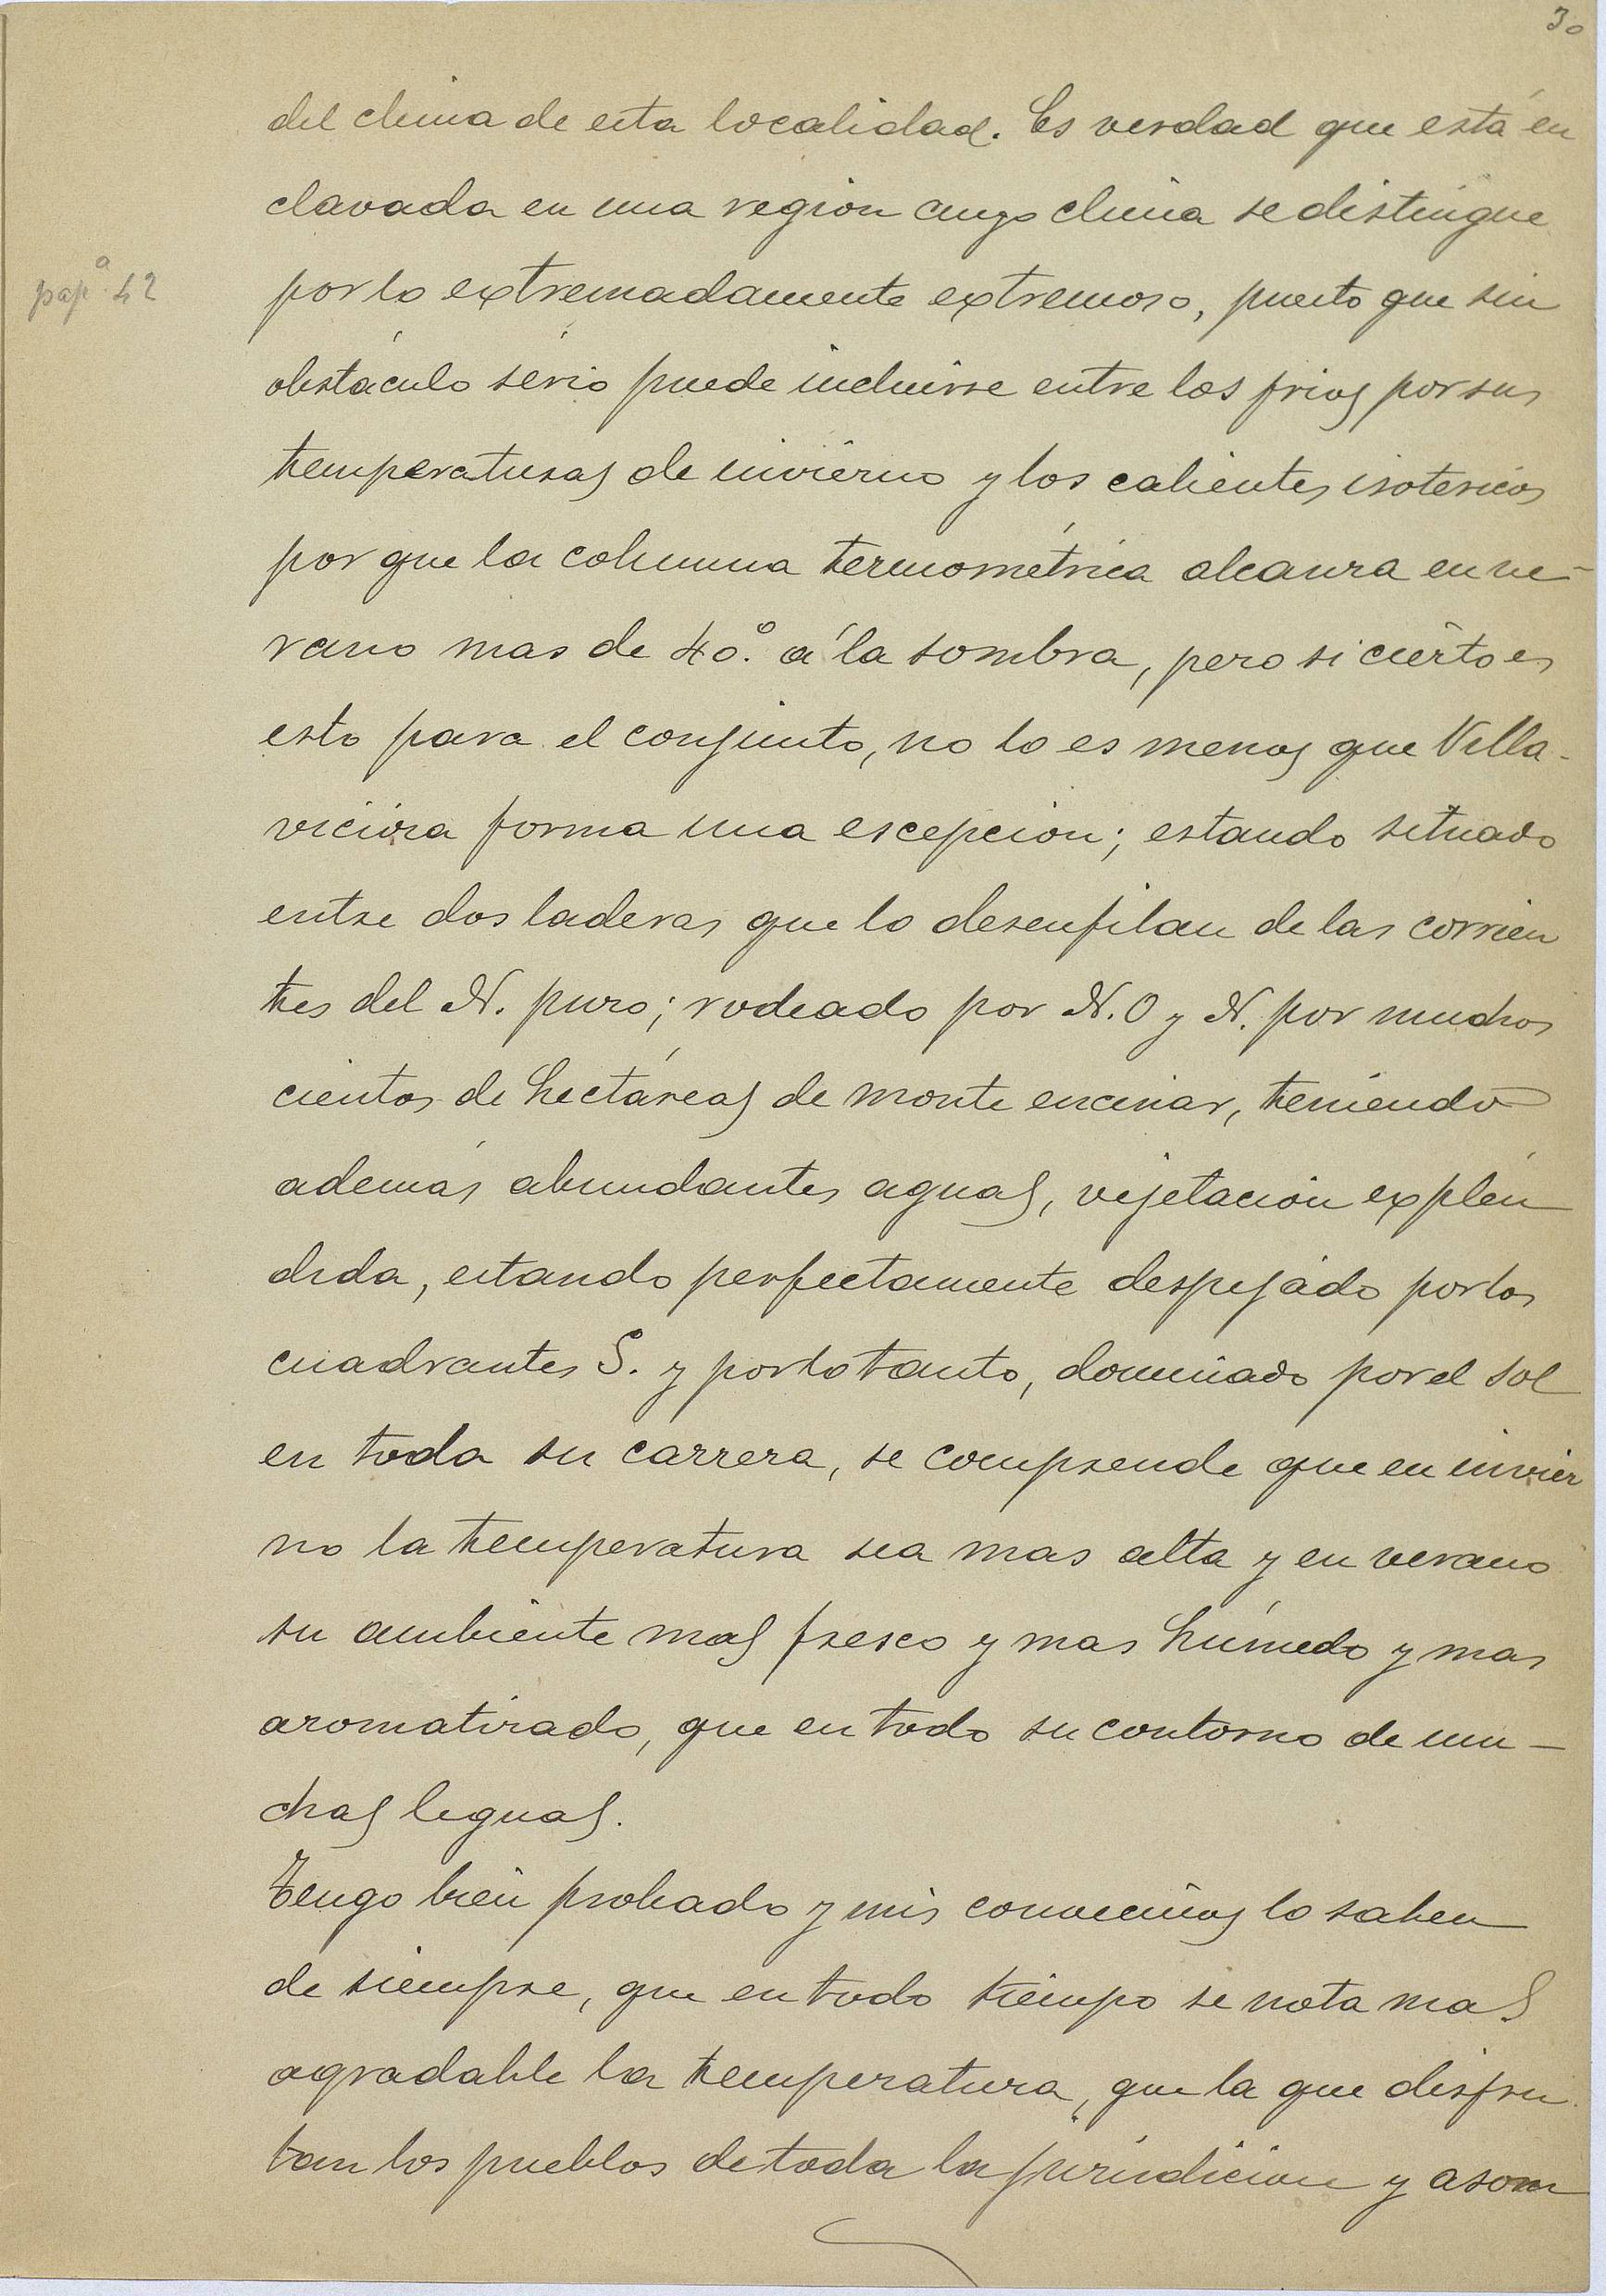 30
del clima de esta localidad. Es verdad que está en
clavada en una region cuyo clima se distingue
pap.ª 42
por lo extremadamente extremoso, puesto que sin
obstáculo sério puede incluirse entre los frios por sus
temperaturas de invierno y los calientes isotericos
por que la columna termométrica alcanza en ve-
rano mas de 40.º á la sombra, pero si cierto es
esto para el conjunto, no lo es menos que Villa-
viciosa forma una escepcion; estando situado
entre dos laderas que lo desenfilan de las corrien
tes del N. puro; rodeado por N.O y N. por muchos
cientos de hectáreas de monte encinar, teniendo
además abundantes aguas, vejetación explén
dida, estando perfectamente despejado por los
cuadrantes S. y por lo tanto, dominado por el sol
en toda su carrera, se comprende que en invier
no la temperatura sea mas alta y en verano
su ambiente mas fresco y mas húmedo y mas
aromatizado, que en todo su contorno de mu-
chas leguas.
Tengo bien probado y mis convecinos lo saben
de siempre, que en todo tiempo se nota mas
agradable la temperatura, que la que disfru
tan los pueblos de toda la jurisdicion y asom